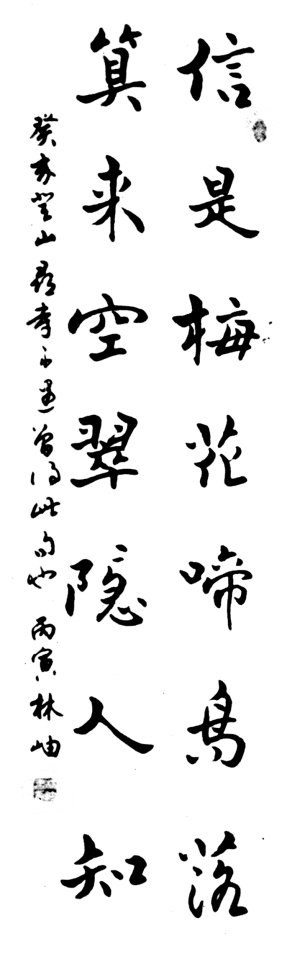 信是梅花啼鳥落
算来空翠隐人知
癸亥登山尋不遇曾得此句也 丙寅林岫